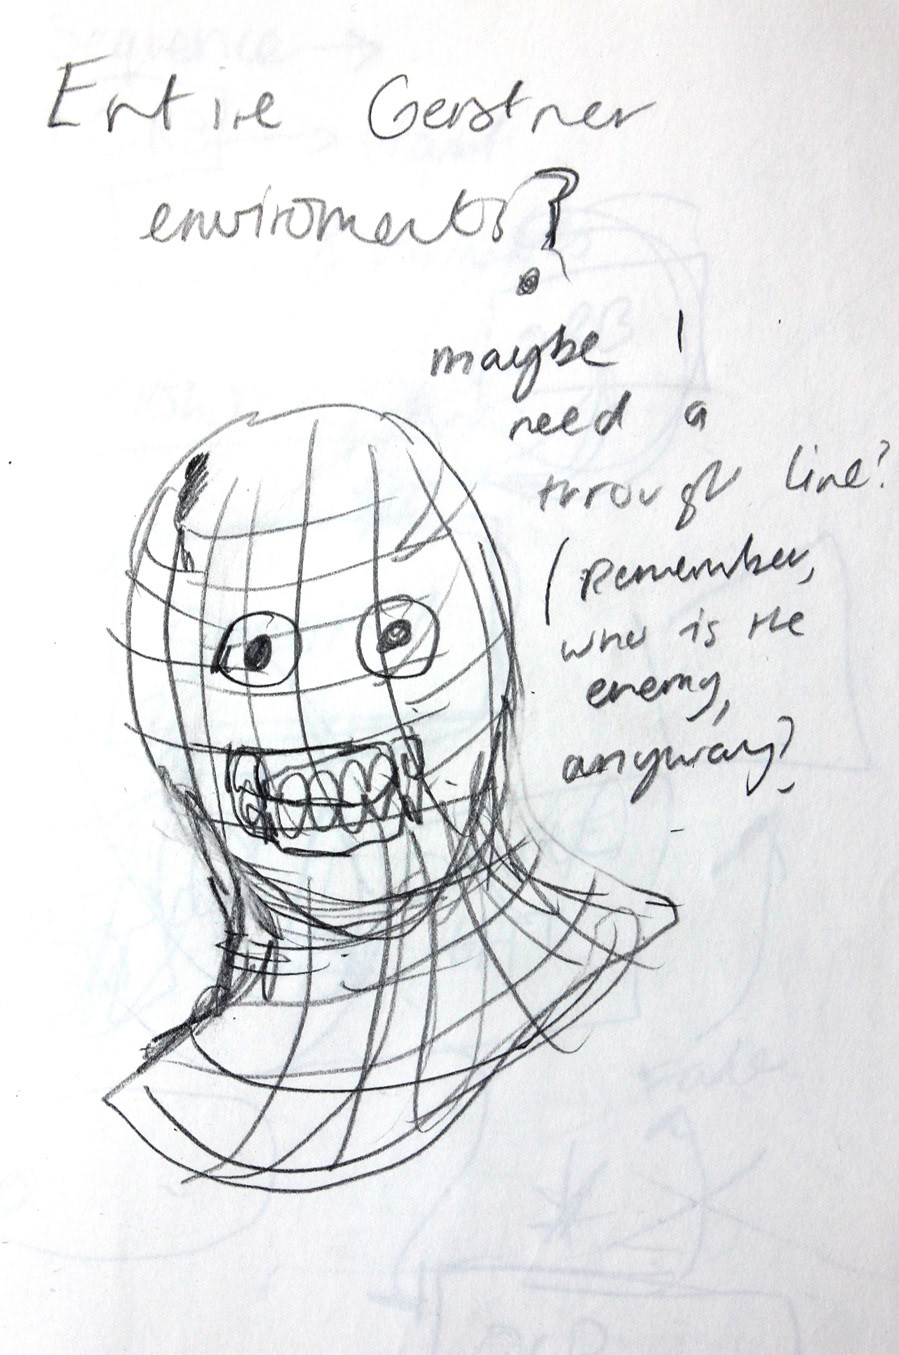 Entire Gerstner
enviroments?
maybe I
need a
through line?
(Remember,
who is the
enemy,
anyway?